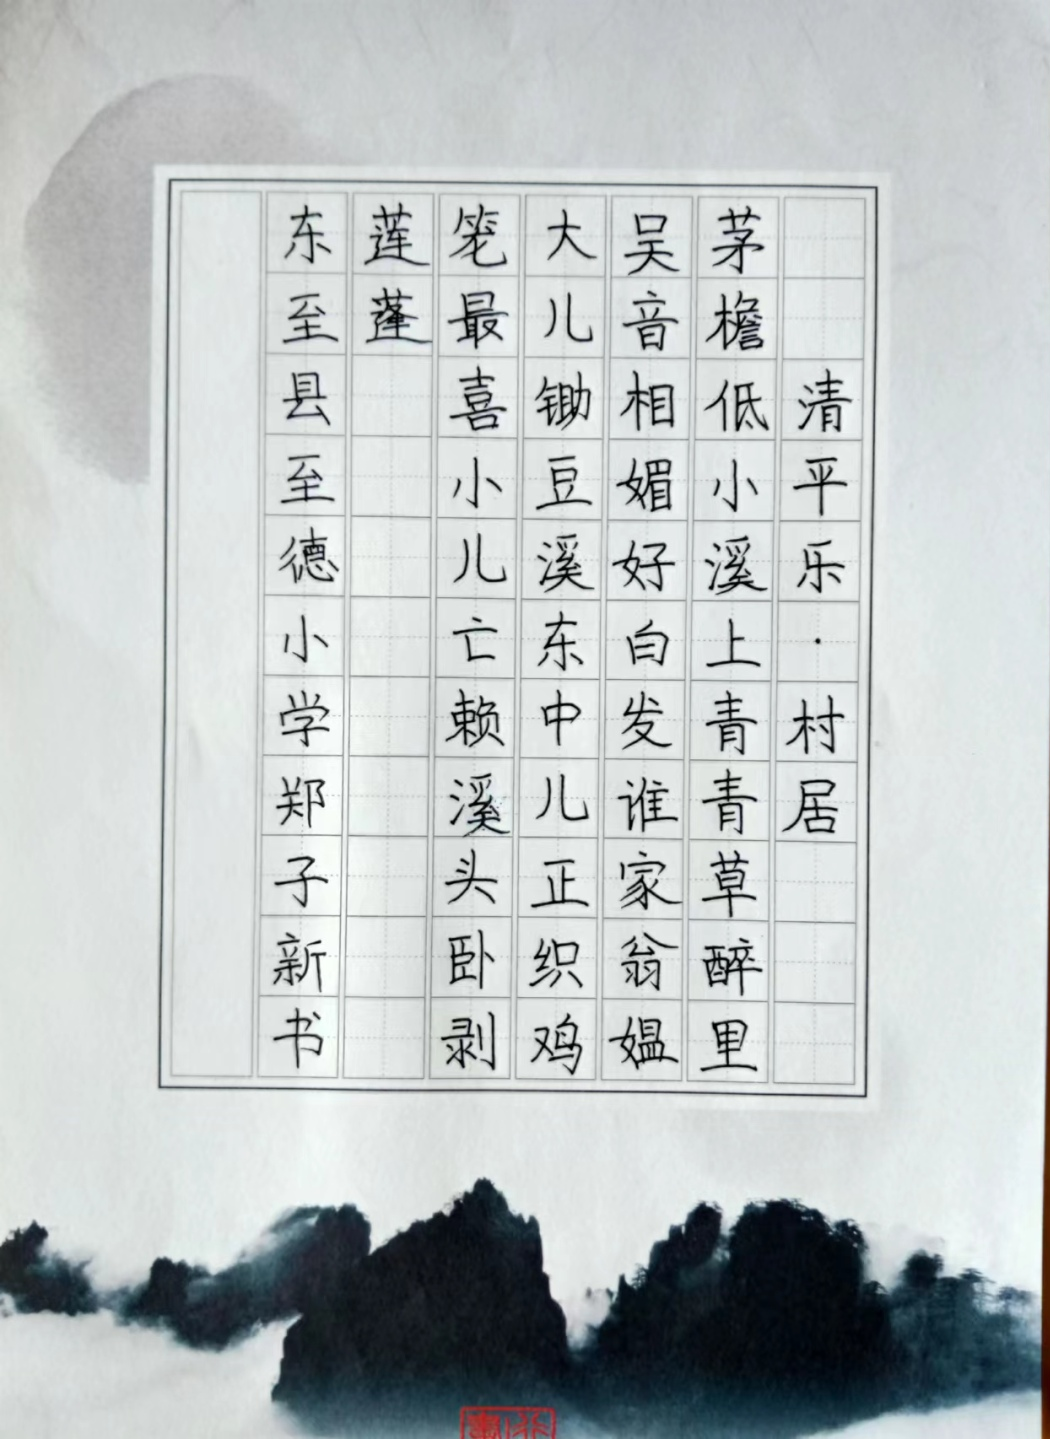 清平乐·村居
茅檐低小溪上青青草醉里
吴音相媚好白发谁家翁媪
大儿锄豆溪东中儿正织鸡
笼最喜小儿亡赖溪头卧剥
莲蓬
东至县至德小学郑子新书